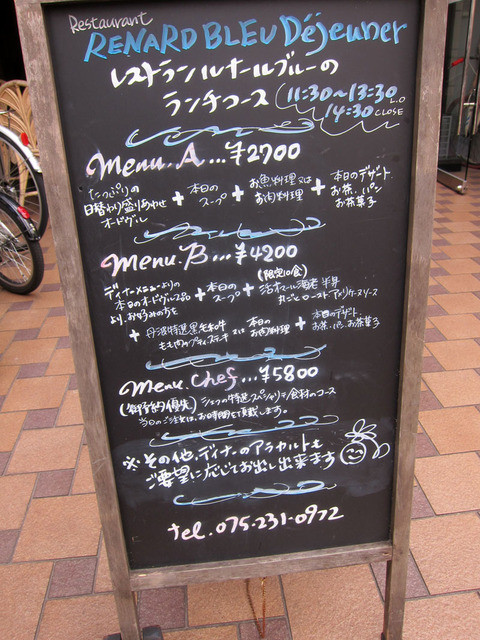 Restaurant
RENARD BLEU Déjeuner
レストランルナールブルーの
ランチコース
11:30~13:30 L.O
14:30 CLOSE
Menu.A...¥2700
たっぷりの
日替わり盛りあわせ
オードヴル
+
本日の
スープ
+
お魚料理又は
お肉料理
+
本日のデザート
お茶、パン
お茶菓子
Menu.B...¥4200
ディナーメニューよりの
本日のオードヴル2品
より、お好みの方を
+
本日の
スープ
+
(限定10食)
活オマール海老 半身
丸ごとロースト アメリケーヌソース
+
丹波特選黒毛和牛
もも肉のプティ・ステーキ
又は
本日の
お肉料理
+
本日のデザート、
お茶、パン、お茶菓子
Menu.Chef...¥5800
(御予約優先)
シェフの特選スペシャリテ食材のコース
当日のご注文は、お時間を頂戴します。
※その他、ディナーのアラカルトも
ご要望に応じてお出し出来ます
tel.075-231-0972